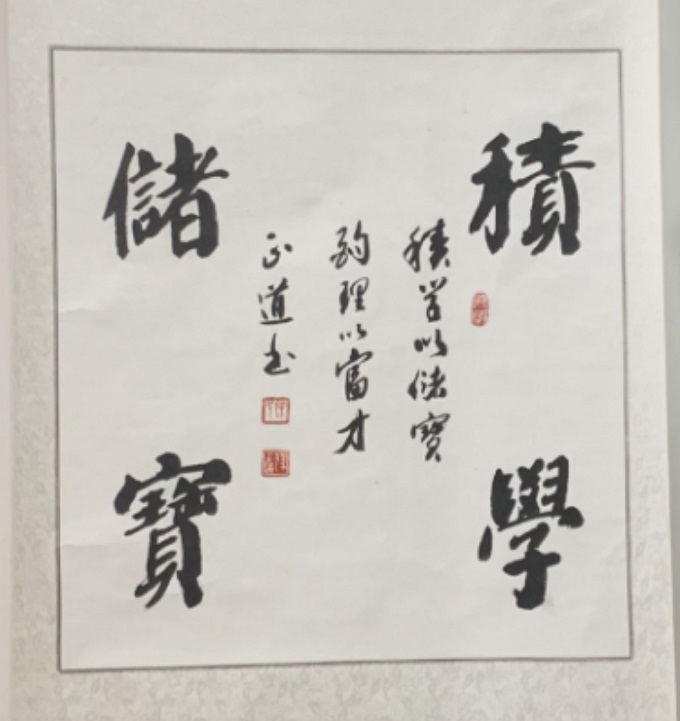 積學
儲寶
積学以儲寶
酌理以富才
正道书